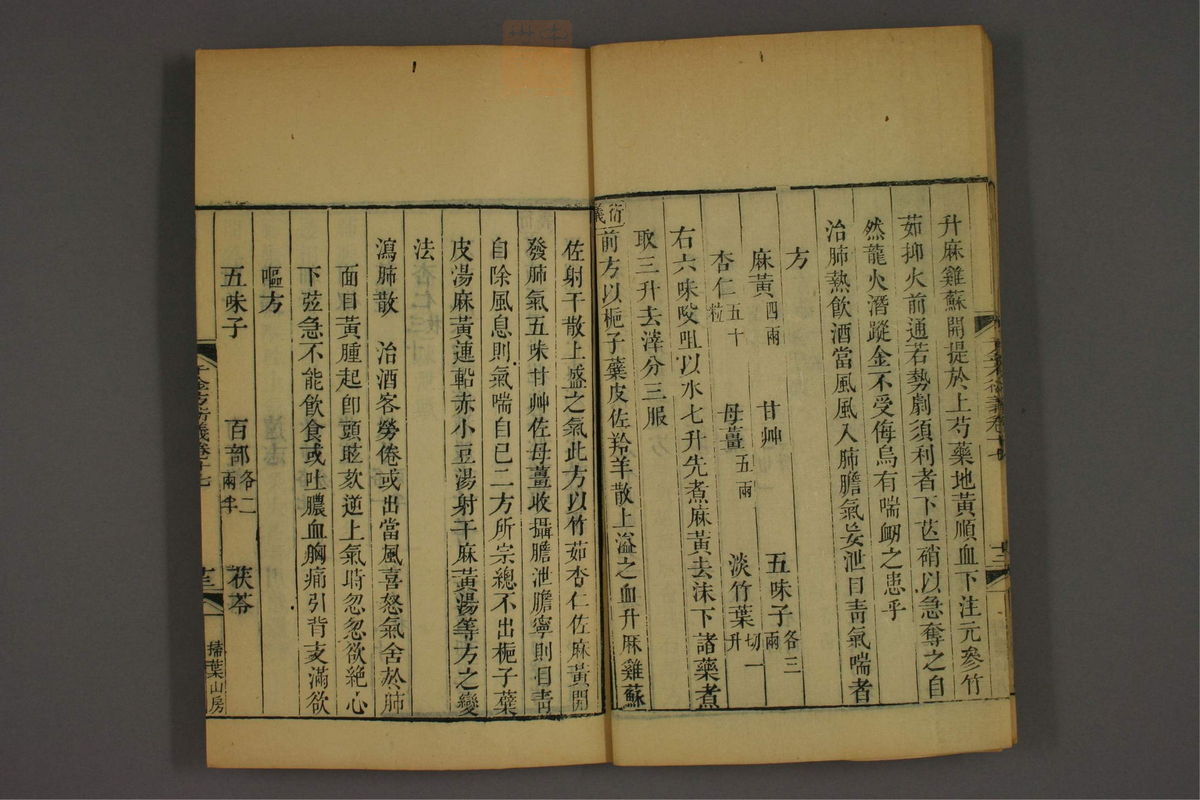 升麻雞蘇開提於上芍藥地黃順血下注元參竹
茹抑火前通若勢劇須利者下芒硝以急奪之自
然龍火潛蹤金不受侮烏有喘衂之患乎
治肺熱飲酒當風風入肺膽氣妄泄目靑氣喘者
方
麻黃四兩 甘艸 五味子各三兩
杏仁五十粒 母薑五兩 淡竹葉切一升
右六味㕮咀以水七升先煮麻黃去沫下諸藥煮
取三升去滓分三服
衍義前方以梔子蘗皮佐羚羊散上溢之血升麻雞蘇
佐射干散上盛之氣此方以竹茹杏仁佐麻黃開
發肺氣五味甘艸佐母薑收攝膽泄膽寧則目靑
自除風息則氣喘自已二方所宗總不出梔子蘗
皮湯麻黃連軺赤小豆湯射干麻黃湯等方之變
法
瀉肺散 治酒客勞倦或出當風喜怒氣舍於肺
面目黃腫起卽頭眩欬逆上氣時忽忽欲絶心
下弦急不能飲食或吐膿血胸痛引背支滿欲
嘔方
五味子 百部各二兩半 茯苓
千金方衍義卷十七 十三 掃葉山房